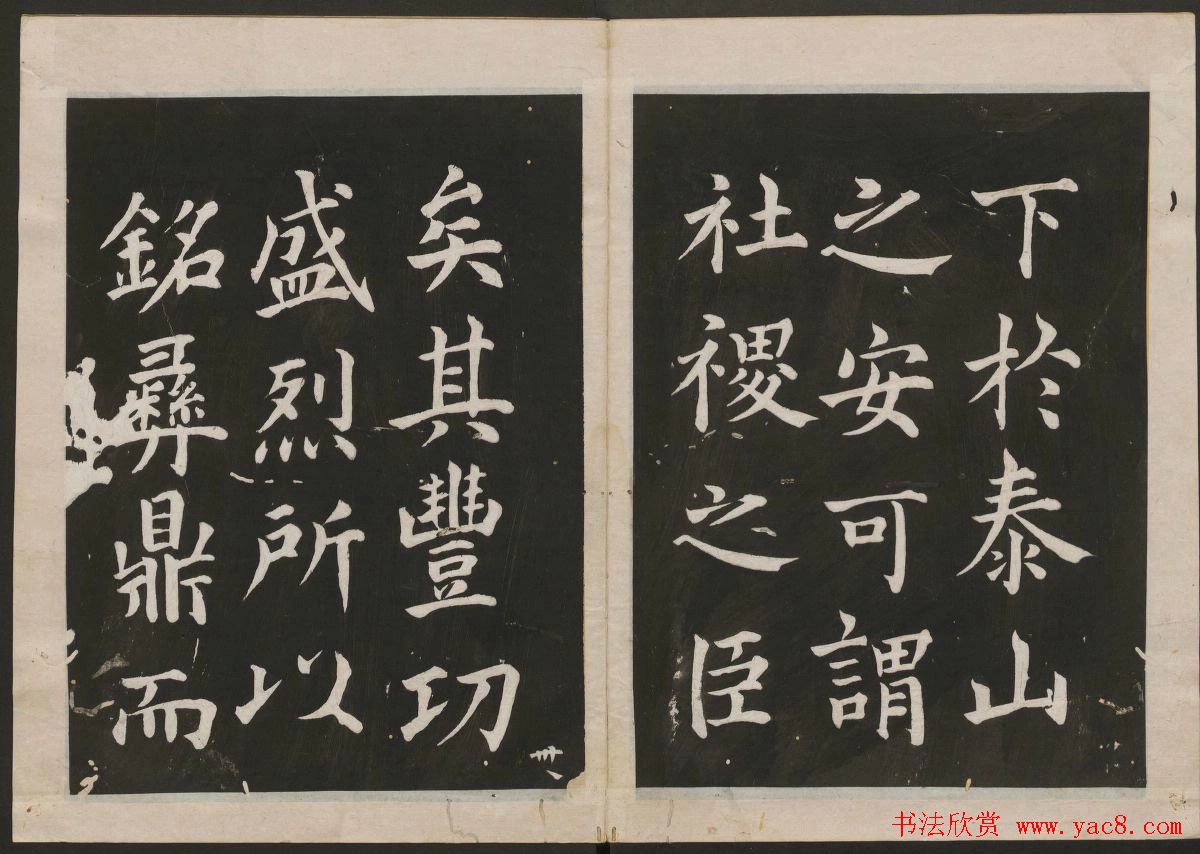 下於泰山
之安可謂
社稷之臣
矣其豐功
盛烈所以
銘彝鼎而
卅
书法欣赏 www.yac8.com